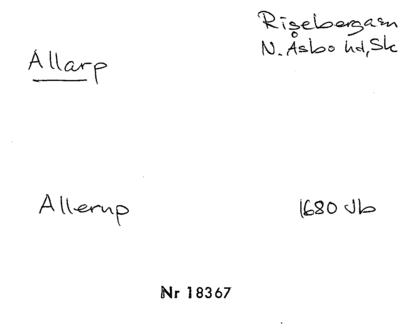 Allarp
Riseberga sn
N. Åsbo hd, Sk
Allerup
1680 Jb
Nr 18367